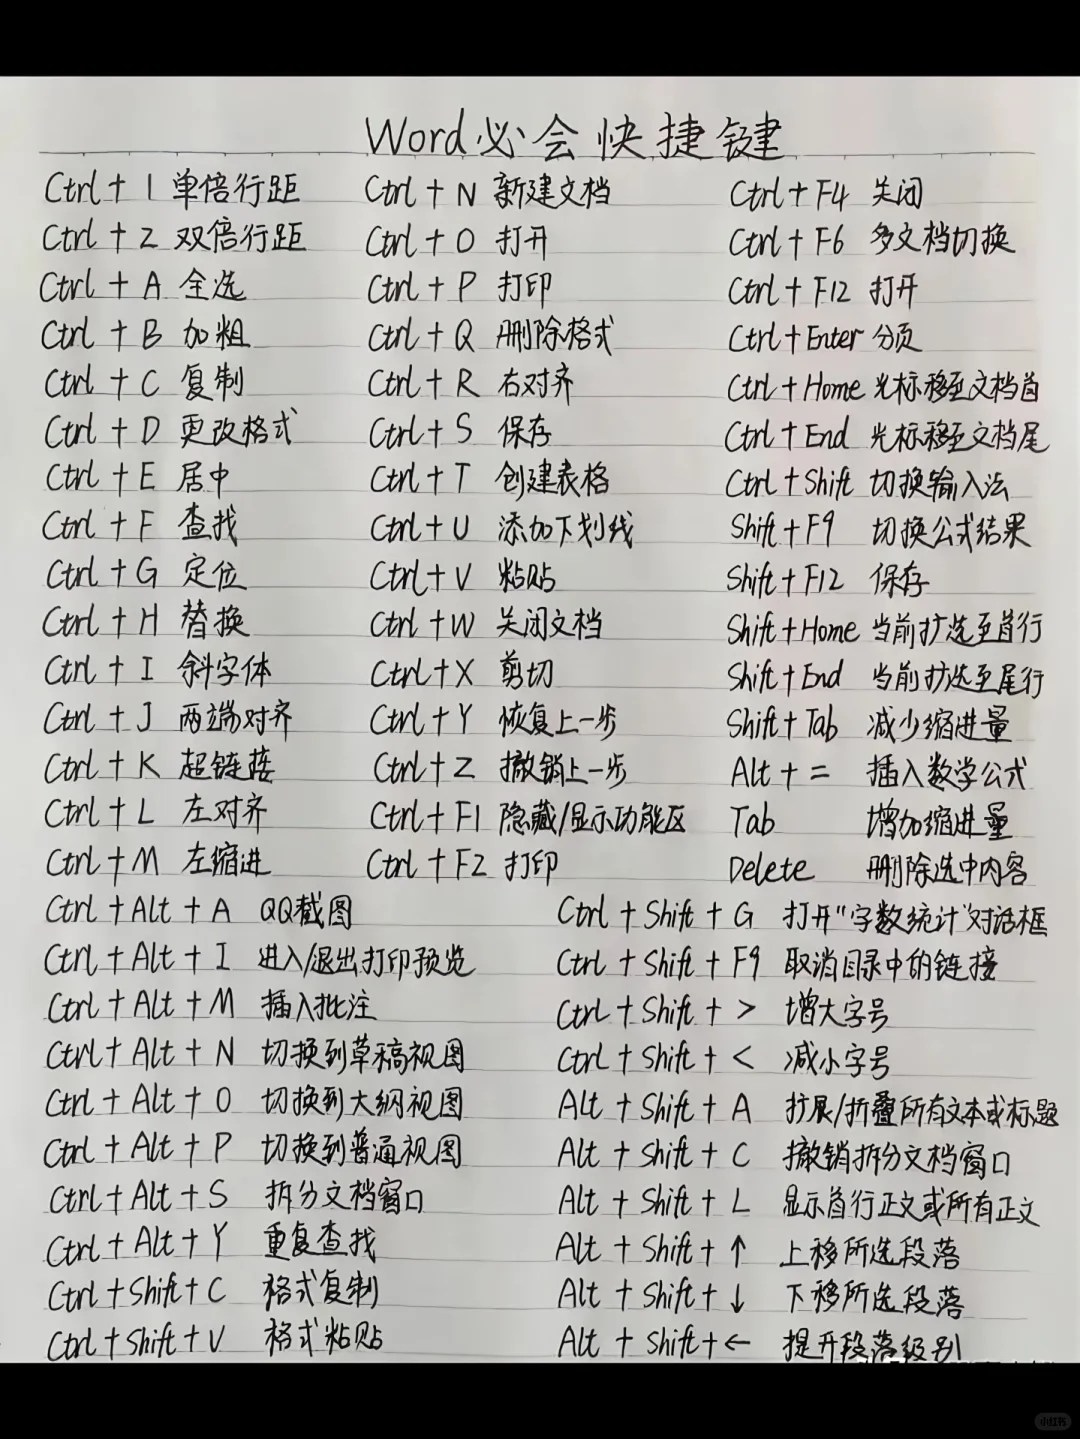 Word必会快捷键
Ctrl + 1 单倍行距
Ctrl + 2 双倍行距
Ctrl + A 全选
Ctrl + B 加粗
Ctrl + C 复制
Ctrl + D 更改格式
Ctrl + E 居中
Ctrl + F 查找
Ctrl + G 定位
Ctrl + H 替换
Ctrl + I 斜字体
Ctrl + J 两端对齐
Ctrl + K 超链接
Ctrl + L 左对齐
Ctrl + M 左缩进
Ctrl + N 新建文档
Ctrl + O 打开
Ctrl + P 打印
Ctrl + Q 删除格式
Ctrl + R 右对齐
Ctrl + S 保存
Ctrl + T 创建表格
Ctrl + U 添加下划线
Ctrl + V 粘贴
Ctrl + W 关闭文档
Ctrl + X 剪切
Ctrl + Y 恢复上一步
Ctrl + Z 撤销上一步
Ctrl + F1 隐藏/显示功能区
Ctrl + F2 打印
Ctrl + F4 关闭
Ctrl + F6 多文档切换
Ctrl + F12 打开
Ctrl + Enter 分页
Ctrl + Home 光标移至文档首
Ctrl + End 光标移至文档尾
Ctrl + Shift 切换输入法
Shift + F9 切换公式结果
Shift + F12 保存
Shift + Home 当前扩选至首行
Shift + End 当前扩选至尾行
Shift + Tab 减少缩进量
Alt + = 插入数学公式
Tab 增加缩进量
Delete 删除选中内容
Ctrl + Alt + A QQ截图
Ctrl + Alt + I 进入/退出打印预览
Ctrl + Alt + M 插入批注
Ctrl + Alt + N 切换到草稿视图
Ctrl + Alt + O 切换到大纲视图
Ctrl + Alt + P 切换到普通视图
Ctrl + Alt + S 拆分文档窗口
Ctrl + Alt + Y 重复查找
Ctrl + Shift + C 格式复制
Ctrl + Shift + V 格式粘贴
Ctrl + Shift + G 打开"字数统计"对话框
Ctrl + Shift + F9 取消目录中的链接
Ctrl + Shift + > 增大字号
Ctrl + Shift + < 减小字号
Alt + Shift + A 扩展/折叠所有文本或标题
Alt + Shift + C 撤销拆分文档窗口
Alt + Shift + L 显示首行正文或所有正文
Alt + Shift + ↑ 上移所选段落
Alt + Shift + ↓ 下移所选段落
Alt + Shift + ← 提升段落级别
小红书